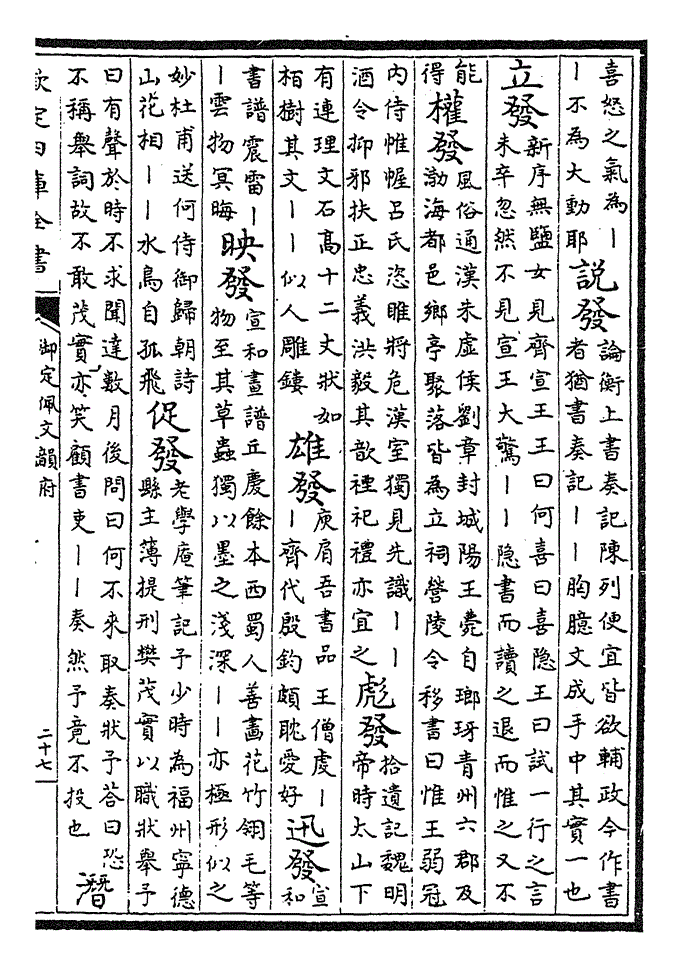 喜怒之氣為丨
丨不為大動耶
說發
論衡上書奏記陳列便宜皆欲輔政今作書
者猶書奏記丨丨胸臆文成手中其實一也
立發
新序無鹽女見齊宣王王曰何喜曰喜隐王曰試一行之言
未卒忽然不見宣王大驚丨丨隐書而讀之退而惟之又不
能
得
權發
風俗通漢朱虚侯劉章封城陽王薨自瑯琊青州六郡及
渤海都邑鄉亭聚落皆為立祠營陵令移書曰惟王弱冠
内侍帷幄呂氏恣睢將危漢室獨見先識丨丨
酒令抑邪扶正忠義洪毅其歆禋祀禮亦宜之
彪發
拾遺記魏明
帝時太山下
有連理文石高十二丈狀如
栢樹其文丨丨似人雕鏤
雄發
庾肩吾書品王僧虔丨
丨齊代殷鈞頗耽愛好
迅發
宣
和
書譜震雷丨
丨雲物冥晦
映發
宣和畫譜丘慶餘本西蜀人善畫花竹翎毛等
物至其草蟲獨以墨之淺深丨丨亦極形似之
妙杜甫送何侍御歸朝詩
山花相丨丨水鳥自孤飛
促發
老學庵筆記予少時為福州寧德
縣主薄提刑樊茂實以職狀舉予
曰有聲於時不求聞達數月後問曰何不來取奏狀予荅曰恐
不稱舉詞故不敢茂實亦笑顧書吏丨丨奏然予竟不投也
潛
欽定四庫全書
御定佩文韻府
二十七